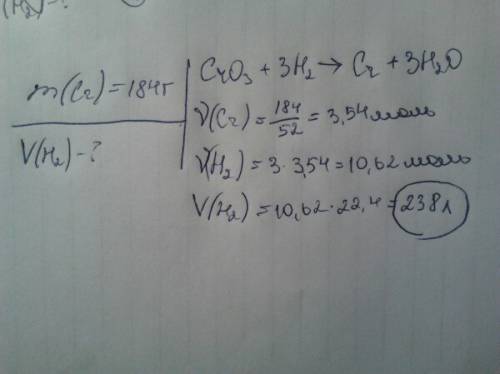 (H₂)-?
m(Cr) = 184г
V(H₂) - ?
CrO₃ + 3H₂ → Cr + 3H₂O
ν(Cr) = 184/52 = 3,54 моль
ν(H₂) = 3 · 3,54 = 10,62 моль
V(H₂) = 10,62 · 22,4 = 238 л